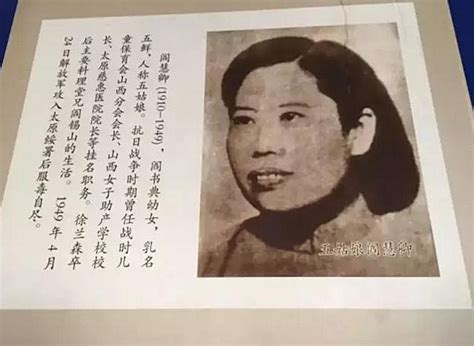 阎慧卿(1910—1949),阎书典幼女,乳名
五鲜,人称五姑娘。抗日战争时期曾任战时儿
童保育会山西分会会长、山西女子助产学校校
长、太原慈惠医院院长等挂名职务。徐兰森卒
后主要料理堂兄阎锡山的生活。1949年4月
24日解放军攻入太原绥署后服毒自尽。
五姑娘阎慧卿